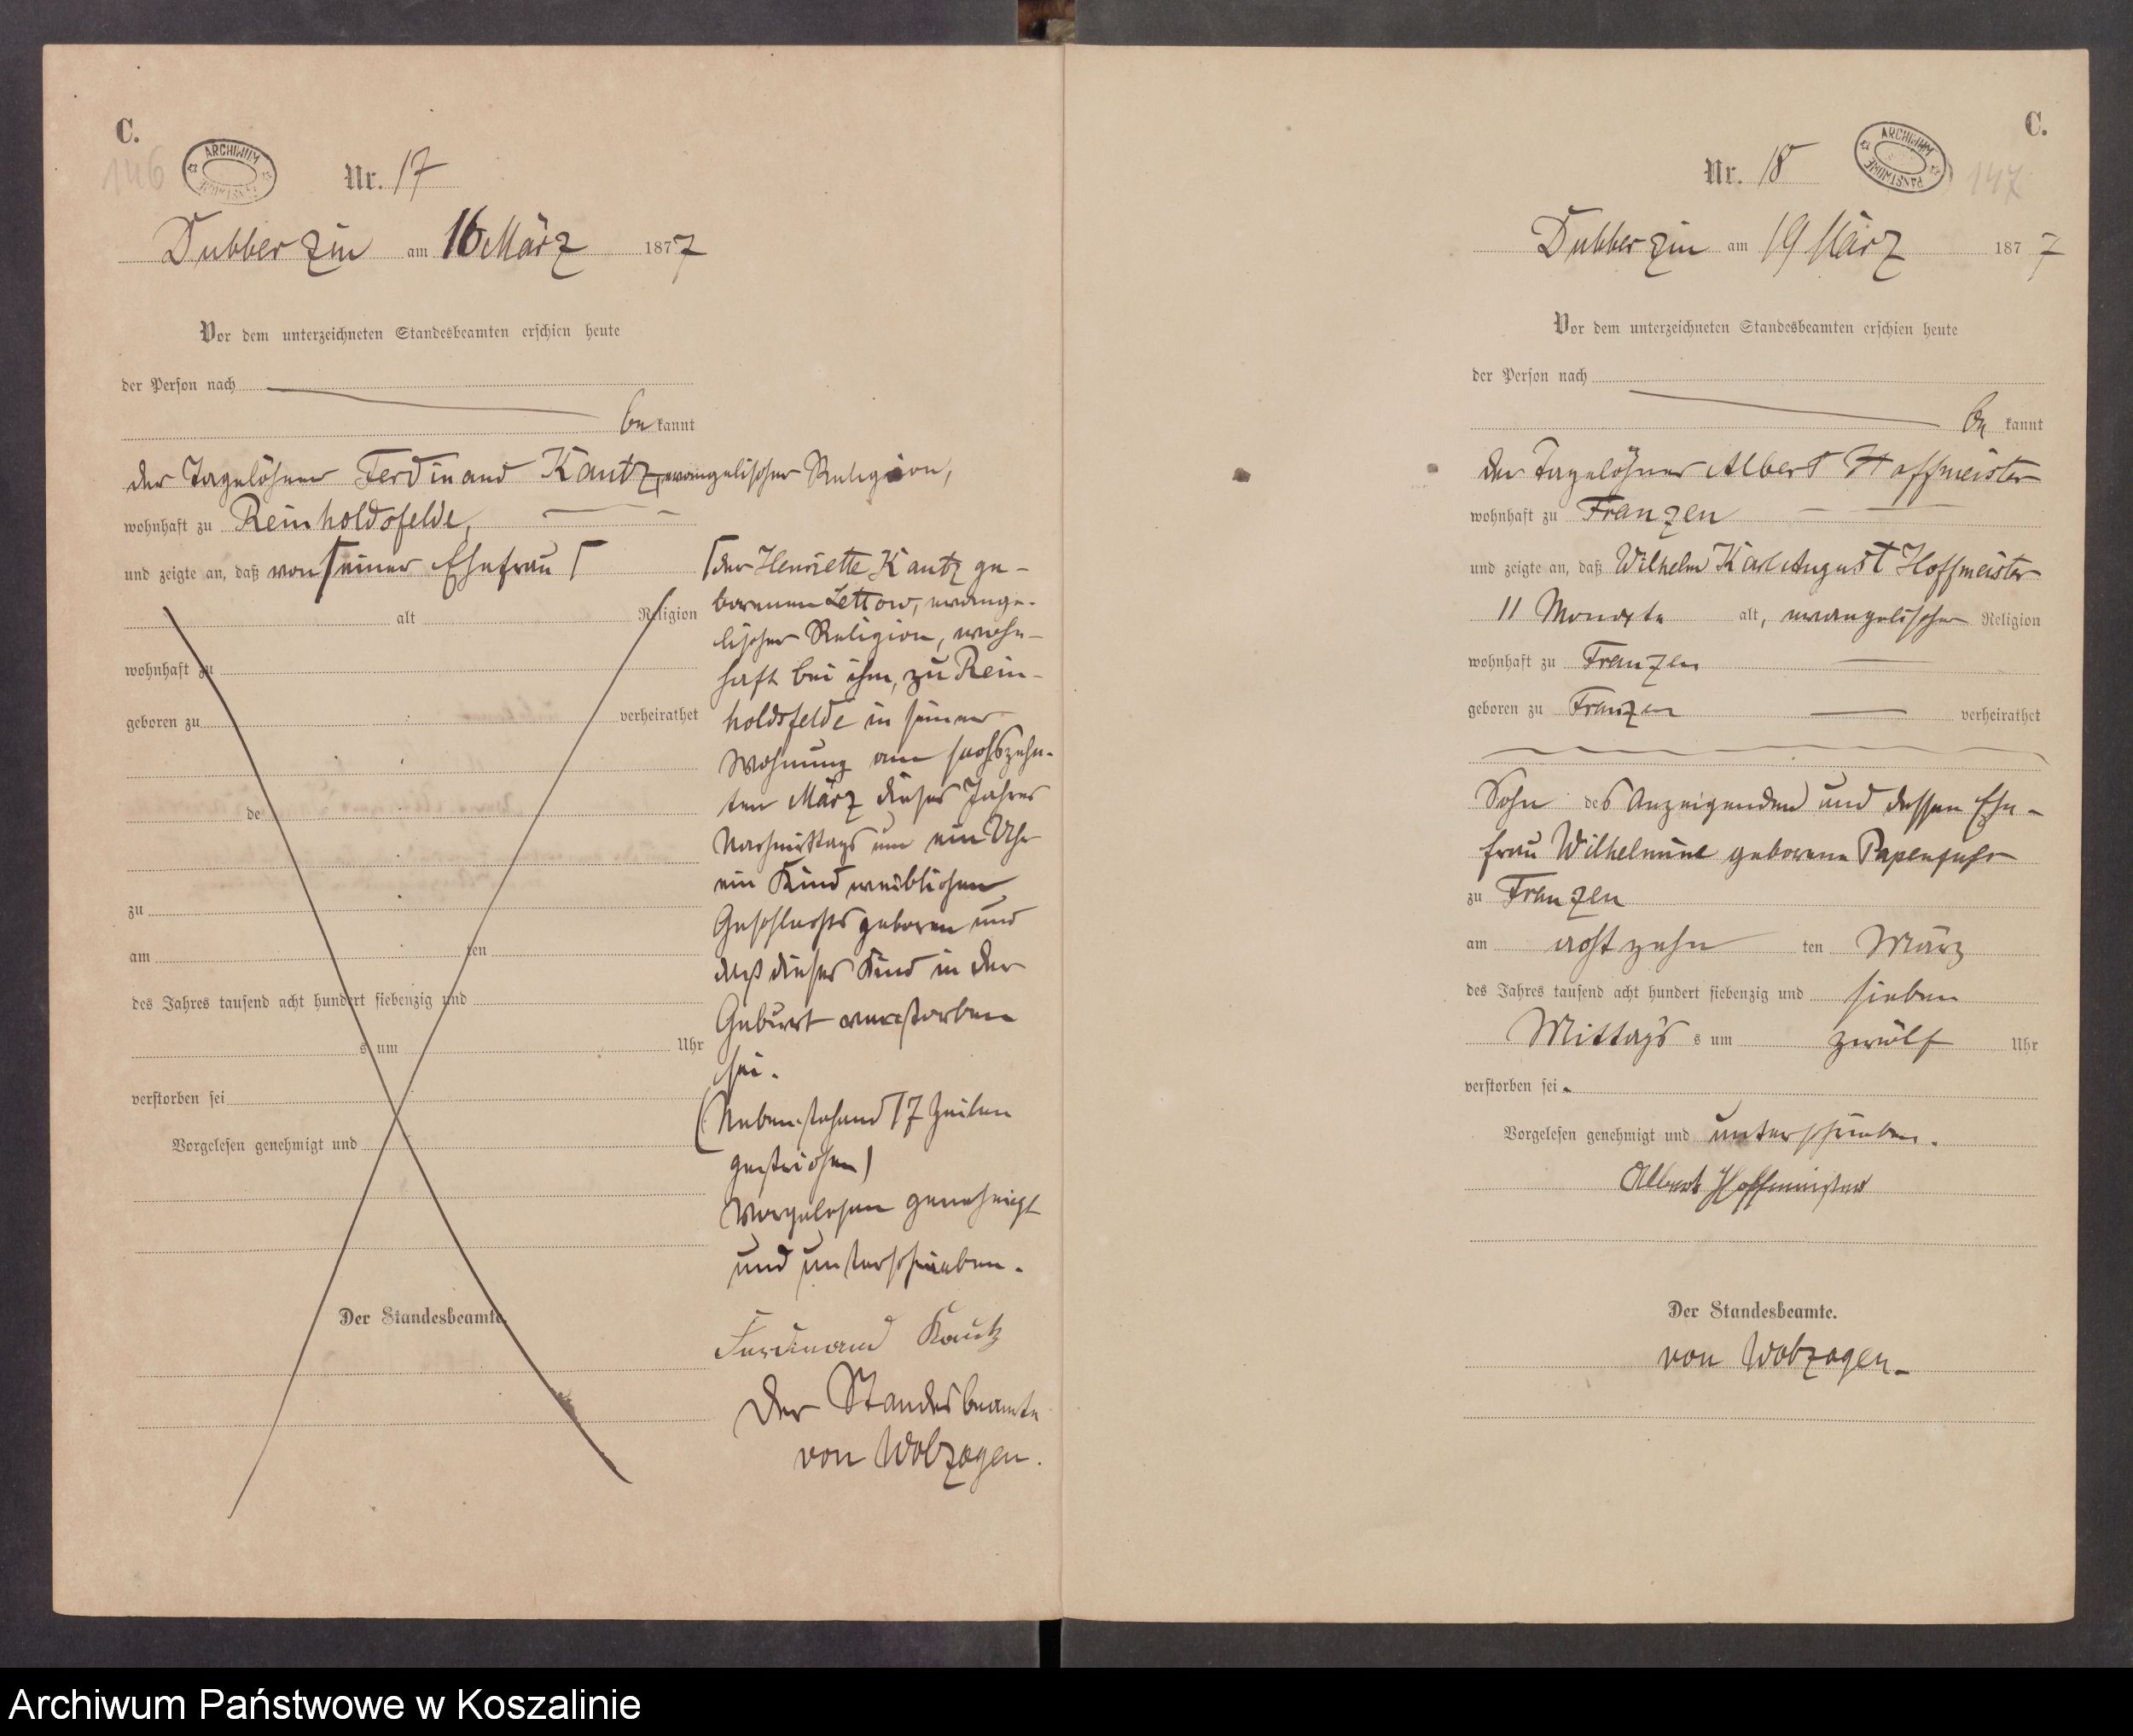 C.
146
ARCHIWUM PAŃSTWOWE
Nr. 17
Dubberzin am 16 März 1877
Vor dem unterzeichneten Standesbeamten erschien heute
der Person nach
be kannt
der Tagelöhner Ferdinand Kautz, evangelischer Religion,
wohnhaft zu Reinholdsfelde,
und zeigte an, daß von seiner Ehefrau ⌈
alt Religion
wohnhaft zu
geboren zu verheirathet
de
zu
am ten
des Jahres tausend acht hundert siebenzig und
s um Uhr
verstorben sei
Vorgelesen genehmigt und
Der Standesbeamte.
⌈der Henriette Kautz ge-
borenen Lettow, evange-
lischer Religion, wohn-
haft bei ihm, zu Rein-
holdsfelde in seiner
Wohnung am sechszehn-
ten März dieses Jahres
Nachmittags um ein Uhr
ein Kind weiblichen
Geschlechts geboren und
daß dieses Kind in der
Geburt verstorben
sei.
(Nebenstehend 17 Zeilen
gestrichen)
Vorgelesen genehmigt
und unterschrieben.
Ferdinand Kautz
Der Standesbeamte
von Wolzogen.
C.
Nr. 18
ARCHIWUM PAŃSTWOWE
147
Dubberzin am 19 März 1877
Vor dem unterzeichneten Standesbeamten erschien heute
der Person nach
be kannt
der Tagelöhner Albert Hoffmeister
wohnhaft zu Franzen
und zeigte an, daß Wilhelm Karl August Hoffmeister
11 Monate alt, evangelischer Religion
wohnhaft zu Franzen
geboren zu Franzen verheirathet
Sohn des Anzeigenden und dessen Ehe-
frau Wilhelmine geborene Papenfuhs
zu Franzen
am acht zehn ten März
des Jahres tausend acht hundert siebenzig und sieben
Mittags s um zwölf Uhr
verstorben sei.
Vorgelesen genehmigt und unterschrieben.
Albert Hoffmeister
Der Standesbeamte.
von Wolzogen.
Archiwum Państwowe w Koszalinie